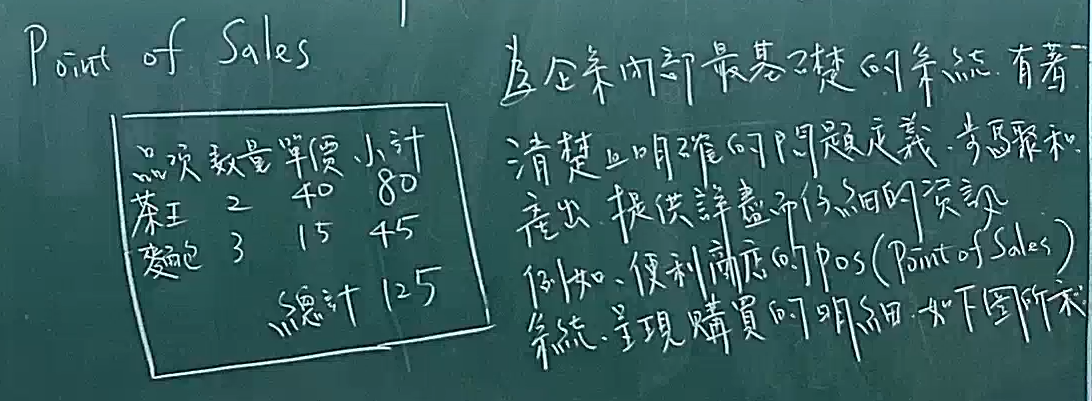 Point of Sales
品次 数量 單價 小計
茶王 2 40 80
麵包 3 15 45
總計 125
為企業內部最基礎的系統.有著
清楚且明確的問題定義.步驟和
產出.提供詳盡而仔細的資訊
例如、便利商店的pos(Point of Sales)
系統.呈現購買的明細.如下圖所示